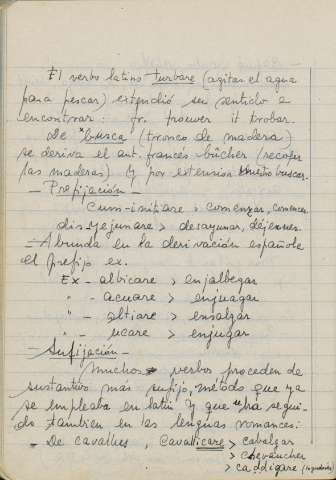 El verbo latino turbare (agitar el agua
para pescar) extendió su sentido a
encontrar: fr. trouver it trobar.
De *busca (tronco de madera)
se deriva el ant. francés bûcher (recoger
las maderas) y por extensión buscar.
- Prefijación -
Cum-initiare > comenzar, comencer
dis-jejunare > desayunar, déjeuner.
- Abunda en la derivación española
el prefijo ex.
Ex - albicare > enjalbegar
" - acuare > enjuagar
" - altiare > ensalzar
" - ucare > enjugar
- Sufijación -
Muchos verbos proceden de
sustantivo más sufijo, método que ya
se empleaba en latín y que ha segui-
do tambien en las lenguas romances:
- De cavallus, cavallicare > cabalgar
> chevaucher
> caddigare (logudorés)